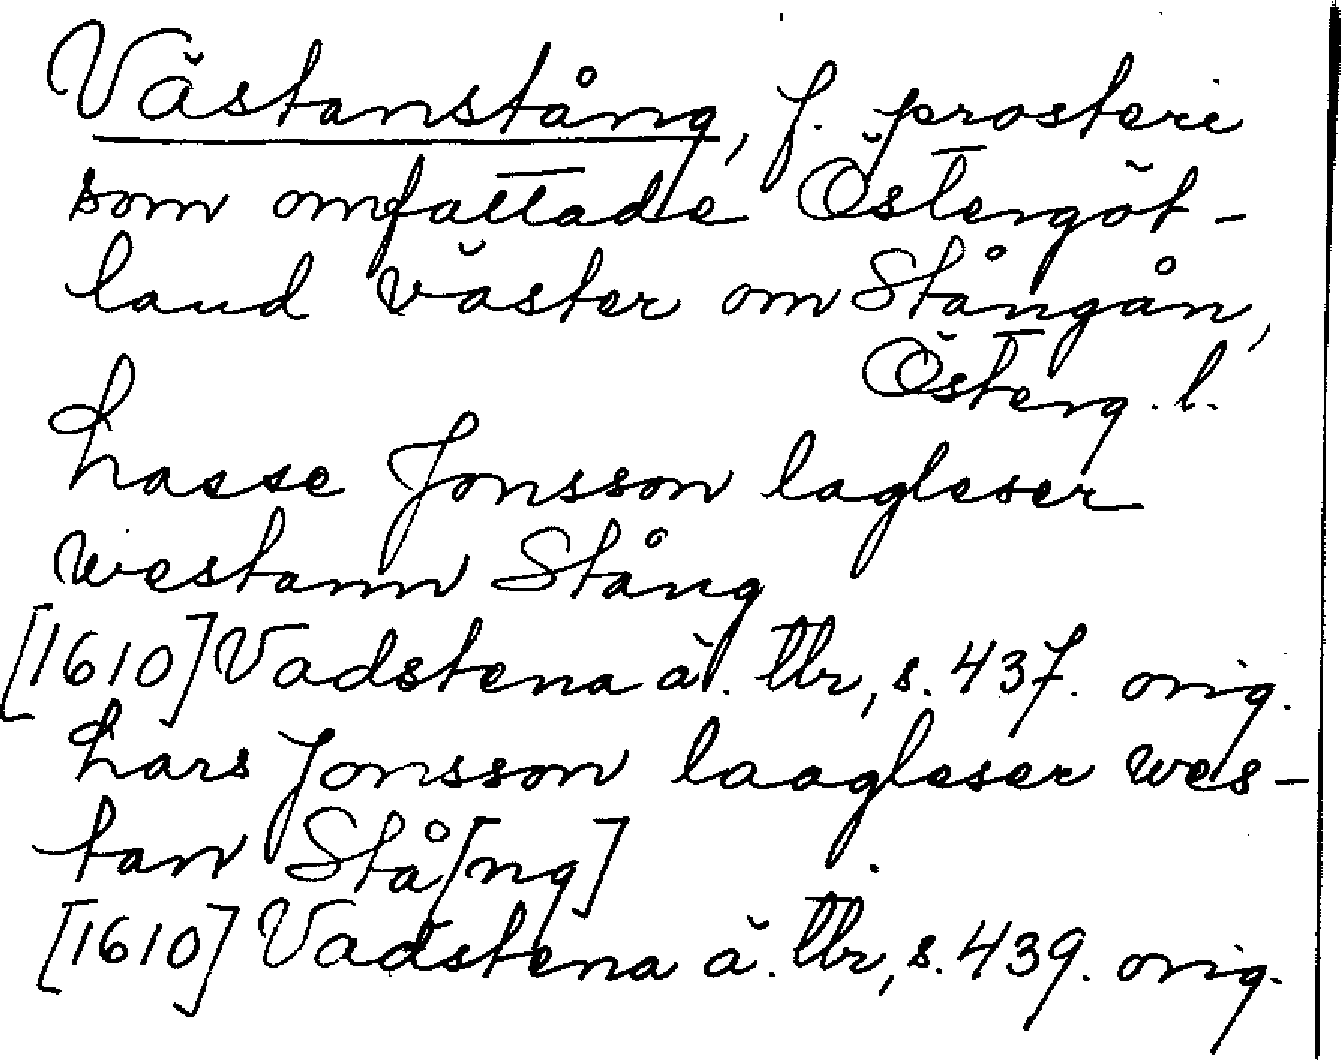 Västanstång, f. prosteri
som omfattade Östergöt-
land väster om Stångån,
Österg. l.
Lasse Jonsson lagleser
westann Stång
[1610] Vadstena ä. tbr, s. 437. orig.
Lars Jonsson laagleser wes-
tan Stå[ng]
[1610] Vadstena ä. tbr, s. 439. orig.